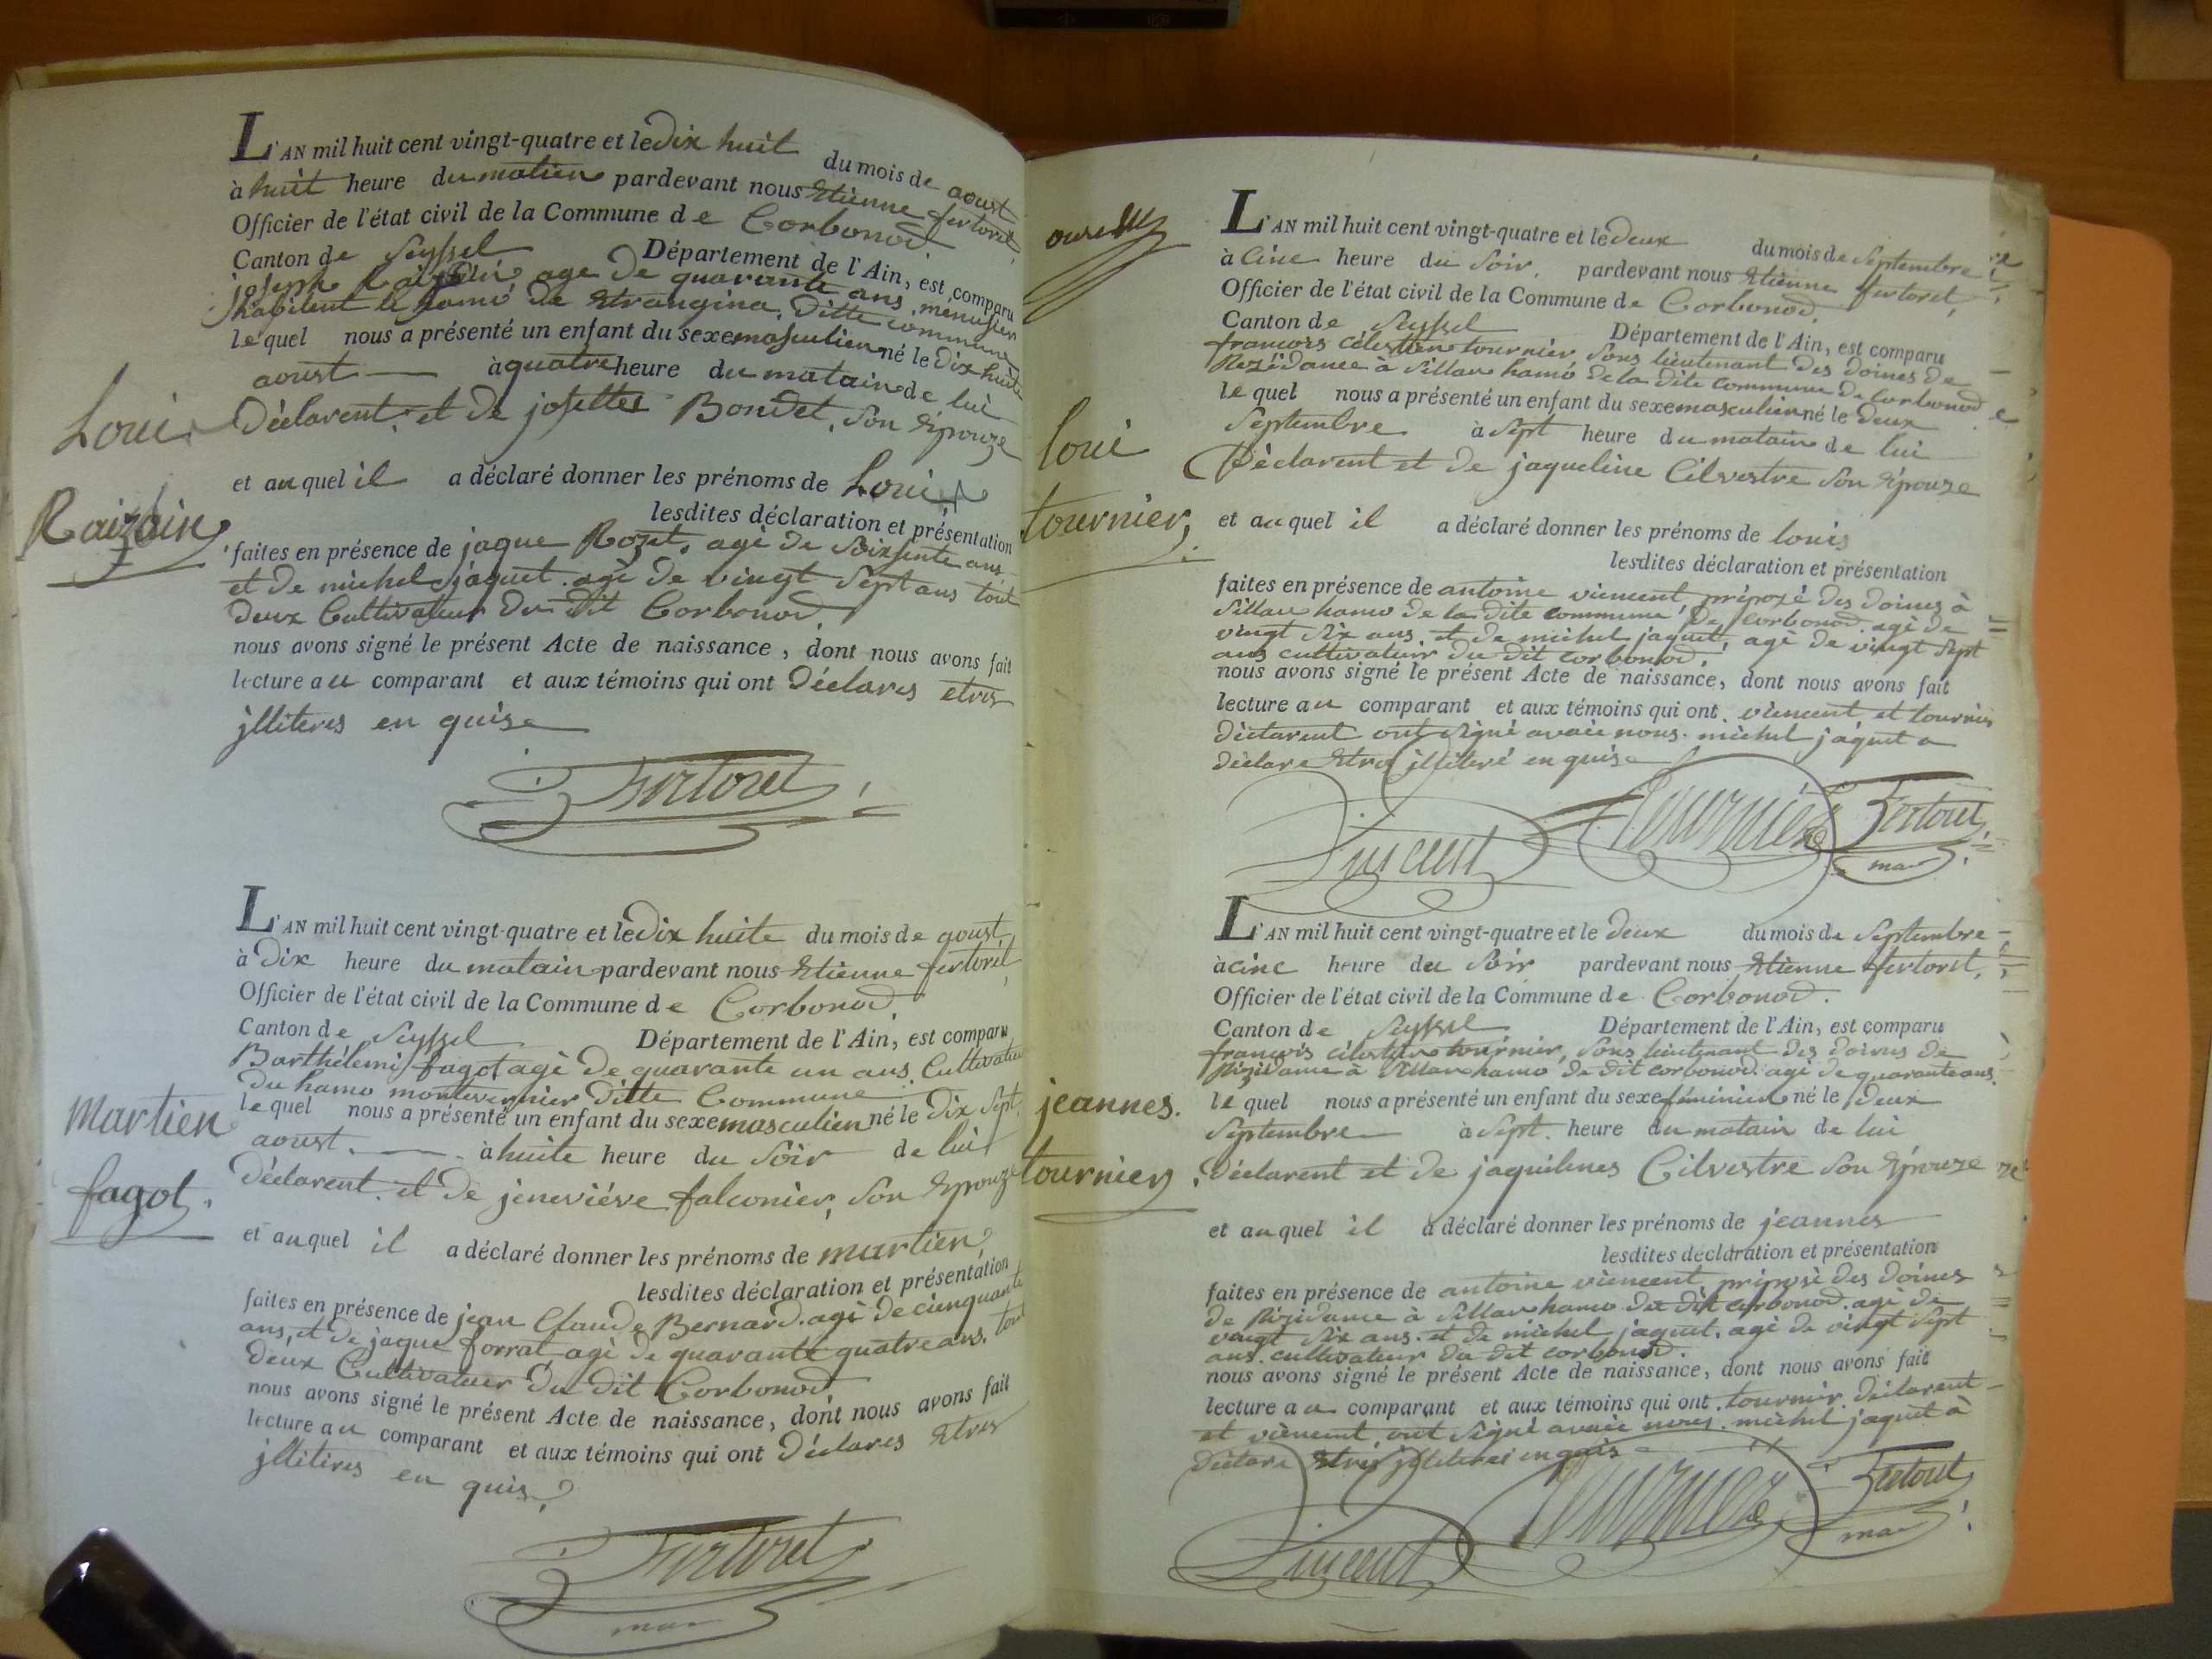 L'AN mil huit cent vingt-quatre et le Dix huit du mois de aoust
à huit heure du matien pardevant nous Etienne fertoret,
Officier de l'état civil de la Commune de Corbonod
Canton de Seyssel Département de l'Ain, est comparu
joseph age de quarante ans, menusier
habitent le hamo de Etrangina, Ditte commune
lequel nous a présenté un enfant du sexe masculien né le Dix huite
aoust à quatre heure du matain de lui
Déclarent. et de josettes Bondet, son Epouze
et auquel il a déclaré donner les prénoms de Loui
lesdites déclaration et présentation
faites en présence de jaque Rozet, agé de Soixsente ans
et de michel jaquet. agé de vingt Sept ans tout
deux Cultivateur Du Dit Corbonod,
nous avons signé le présent Acte de naissance, dont nous avons fait
lecture au comparant et aux témoins qui ont Déclares etres
jlliteres en quise
Fertoret
Loui
Raizain
L'AN mil huit cent vingt-quatre et le Dix huite du mois de aoust
à Dix heure du matain pardevant nous Etienne fertoret
Officier de l'état civil de la Commune de Corbonod,
Canton de Seyssel Département de l'Ain, est comparu
Barthélemi fagot agé de quarante un ans Cultivateur
du hamo montvernier Ditte Commune
lequel nous a présenté un enfant du sexe masculien né le Dix Sept
aoust. à huite heure du Soir de lui
Déclarent. et De jeneviéve falconier, Son Epouze
et auquel il a déclaré donner les prénoms de martien
lesdites déclaration et présentation
faites en présence de jean Claude Bernard. agé de cienquante
ans, et de jaque forrat agé de quarante quatre ans. tout
deux Cultivateur Du dit Corbonod,
nous avons signé le présent Acte de naissance, dont nous avons fait
lecture au comparant et aux témoins qui ont Déclares Etres
jlliteres en quise
Fertoret
mar
Martien
fagot.
L'AN mil huit cent vingt-quatre et le deux du mois de Septembre
à Cinc heure du Soir. pardevant nous Etienne fertoret,
Officier de l'état civil de la Commune de Corbonod,
Canton de Seyssel Département de l'Ain, est comparu
francois célestien tournier, Sous lieutenant des doines de
Rezidance à Sillan hamo de la dite commune de Corbonod
lequel nous a présenté un enfant du sexe masculien né le deux
Septembre à Sept heure du matain de lui
Déclarent et de jaqueline Cilvestre Son Epouze
et auquel il a déclaré donner les prénoms de louis
lesdites déclaration et présentation
faites en présence de antoine viencent, prépozé Des Doines à
Sillan hamo de la dite commune, De Corbonod. agé de
vingt Six ans. et de michel jaquet, agé de vingt Sept
ans cultivateur du dit corbonod,
nous avons signé le présent Acte de naissance, dont nous avons fait
lecture au comparant et aux témoins qui ont. viencent, et tournier
déclarent ont Signé avaie nous. michel jaquet a
déclare Etres jlliteré en quise
Vincent Tournier Fertoret
mar
loui
tournier,
L'AN mil huit cent vingt-quatre et le deux du mois de Septembre
à cinc heure du Soir pardevant nous Etienne fertoret,
Officier de l'état civil de la Commune de Corbonod.
Canton de Seyssel Département de l'Ain, est comparu
francois célestien tournier, Sous lieutenant des doines de
Rizidance à Sillan hamo de dit corbonod. agé de quarante ans.
lequel nous a présenté un enfant du sexe féminien né le deux
Septembre à Sept. heure du matain de lui
Déclarent et de jaquelines Cilvestre Son Epouze
et auquel il a déclaré donner les prénoms de jeannes
lesdites déclaration et présentation
faites en présence de antoine viencent, préposé Des Doines
de Rizidance à Sillan hamo du dit corbonod. agé de
vingt Six ans. et de michel jaquet. agé de vingt Sept
ans. cultivateur du dit corbonod.
nous avons signé le présent Acte de naissance, dont nous avons fait
lecture au comparant et aux témoins qui ont. tournier. déclarent
et viencent, ont Signé avaie nous. michel jaquet à
Déclare Etres jlliteres en quise
Vincent Tournier Fertoret
mar
jeannes.
tournier,